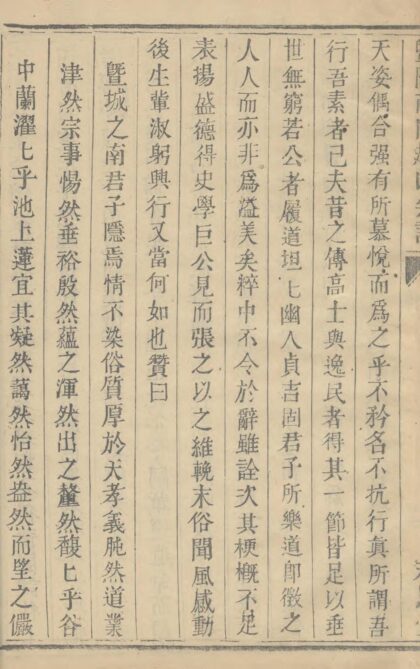 天姿偶合强有所慕悅而爲之乎不矜名不抗行眞所謂吾
行吾素者已夫昔之傳高士與逸民者得其一節皆足以垂
世無窮若公者履道坦匕幽人貞吉固君子所樂道卽徵之
人人而亦非爲溢美矣粹中不令於辭雖詮次其梗槪不足
表揚盛德得史學巨公見而張之以之維輓末俗聞風感動
後生輩淑躬興行又當何如也贊曰
曁城之南君子隱焉情不染俗質厚於天孝義肫然道業
津然宗事惕然垂裕殷然蘊之渾然出之釐然馥匕乎谷
中蘭濯匕乎池上蓮宜其凝然藹然怡然盎然而望之儼